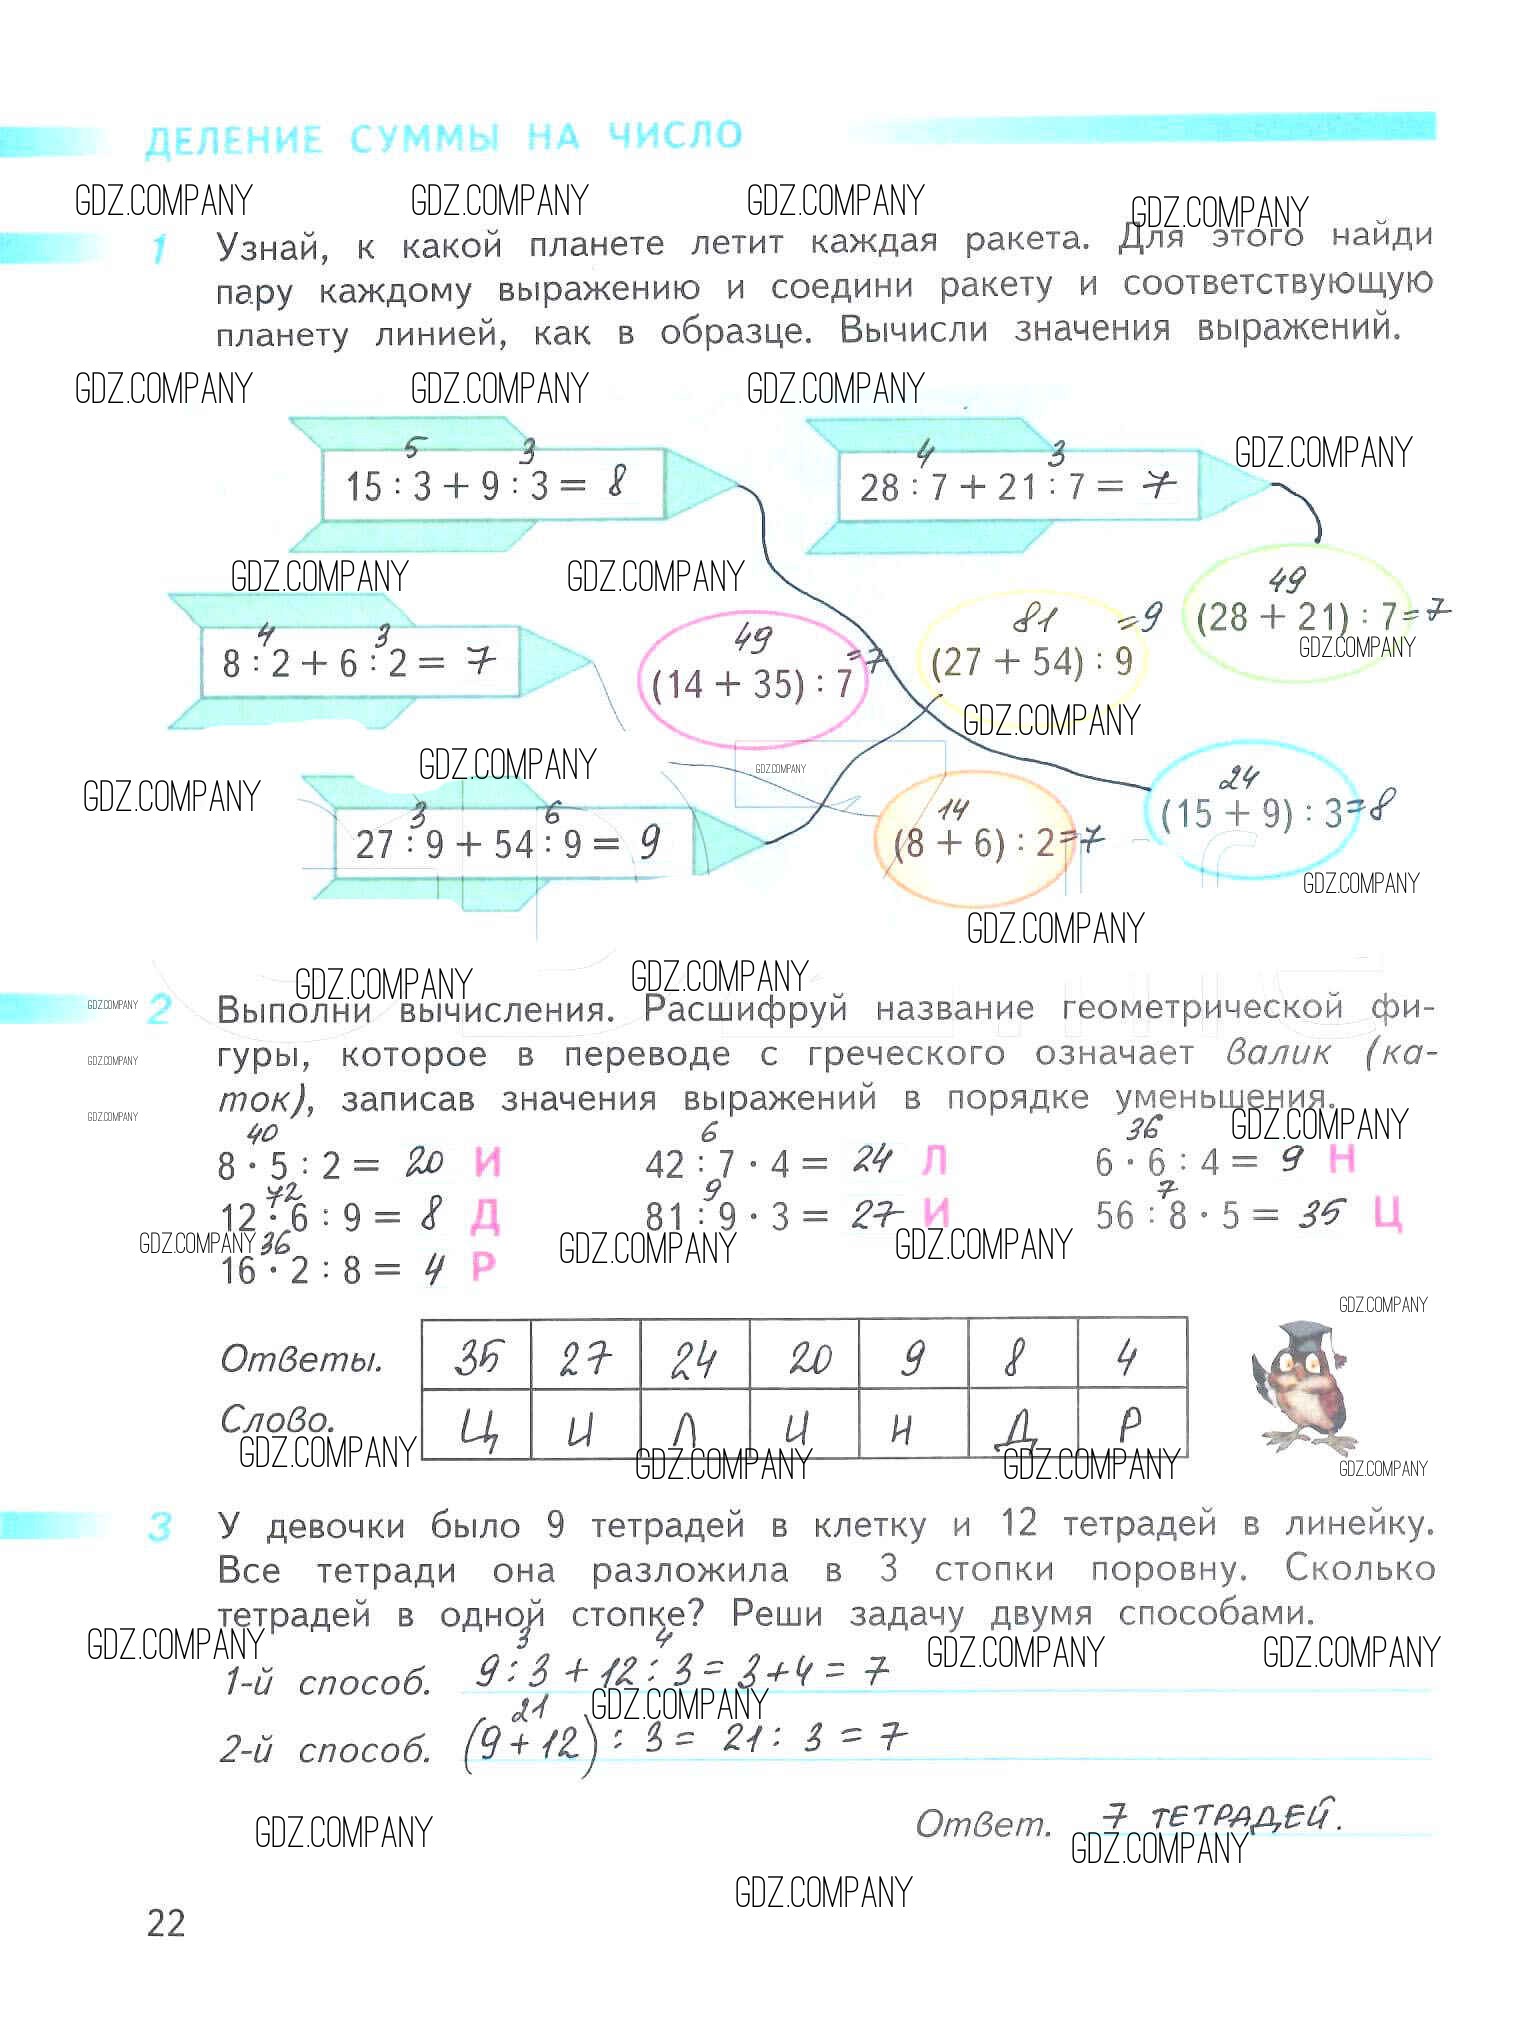 ДЕЛЕНИЕ СУММЫ НА ЧИСЛО
GDZ.COMPANY GDZ.COMPANY GDZ.COMPANY GDZ.COMPANY
1 Узнай, к какой планете летит каждая ракета. Для этого найди
пару каждому выражению и соедини ракету и соответствующую
планету линией, как в образце. Вычисли значения выражений.
GDZ.COMPANY GDZ.COMPANY GDZ.COMPANY
5 3
15 : 3 + 9 : 3 = 8
4 3
28 : 7 + 21 : 7 = 7
GDZ.COMPANY
GDZ.COMPANY GDZ.COMPANY
49
(28 + 21) : 7 = 7
GDZ.COMPANY
4 3
8 : 2 + 6 : 2 = 7
49
(14 + 35) : 7 = 7
81
(27 + 54) : 9 = 9
GDZ.COMPANY
GDZ.COMPANY
GDZ.COMPANY
GDZ.COMPANY
3 6
27 : 9 + 54 : 9 = 9
14
(8 + 6) : 2 = 7
24
(15 + 9) : 3 = 8
GDZ.COMPANY
GDZ.COMPANY
GDZ.COMPANY GDZ.COMPANY
GDZ.COMPANY
2 Выполни вычисления. Расшифруй название геометрической фи-
гуры, которое в переводе с греческого означает валик (ка-
GDZ.COMPANY
ток), записав значения выражений в порядке уменьшения.
GDZ.COMPANY
GDZ.COMPANY
40 6 36
8 · 5 : 2 = 20 И 42 : 7 · 4 = 24 Л 6 · 6 : 4 = 9 Н
72 9 7
12 · 6 : 9 = 8 Д 81 : 9 · 3 = 27 И 56 : 8 · 5 = 35 Ц
GDZ.COMPANY GDZ.COMPANY GDZ.COMPANY
36
16 · 2 : 8 = 4 Р
GDZ.COMPANY
Ответы. 35 27 24 20 9 8 4
Слово. Ц И Л И Н Д Р
GDZ.COMPANY GDZ.COMPANY GDZ.COMPANY GDZ.COMPANY
3 У девочки было 9 тетрадей в клетку и 12 тетрадей в линейку.
Все тетради она разложила в 3 стопки поровну. Сколько
тетрадей в одной стопке? Реши задачу двумя способами.
GDZ.COMPANY GDZ.COMPANY GDZ.COMPANY
3 4
1-й способ. 9 : 3 + 12 : 3 = 3 + 4 = 7
GDZ.COMPANY
21
2-й способ. (9 + 12) : 3 = 21 : 3 = 7
GDZ.COMPANY
Ответ. 7 ТЕТРАДЕЙ.
GDZ.COMPANY
GDZ.COMPANY
22